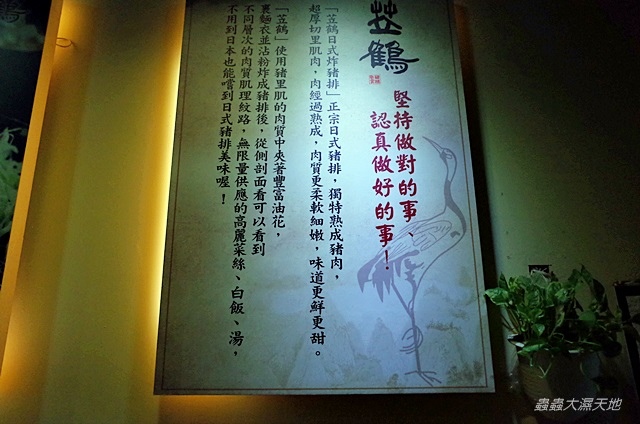 荎鶴
堅持做對的事、
認真做好的事！
「荎鶴日式炸豬排」正宗日式豬排，獨特熟成豬肉，
超厚切里肌肉，肉經過熟成，肉質更柔軟細嫩，味道更鮮更甜。
「荎鶴」使用豬里肌的肉質中夾著豐富油花，
裹麵衣並沾粉炸成豬排後，從側剖面看可以看到
不同層次的肉質肌理紋路，無限量供應的高麗菜絲、白飯、湯，
不用到日本也能嚐到日式豬排美味喔！
蟲蟲大濕天地